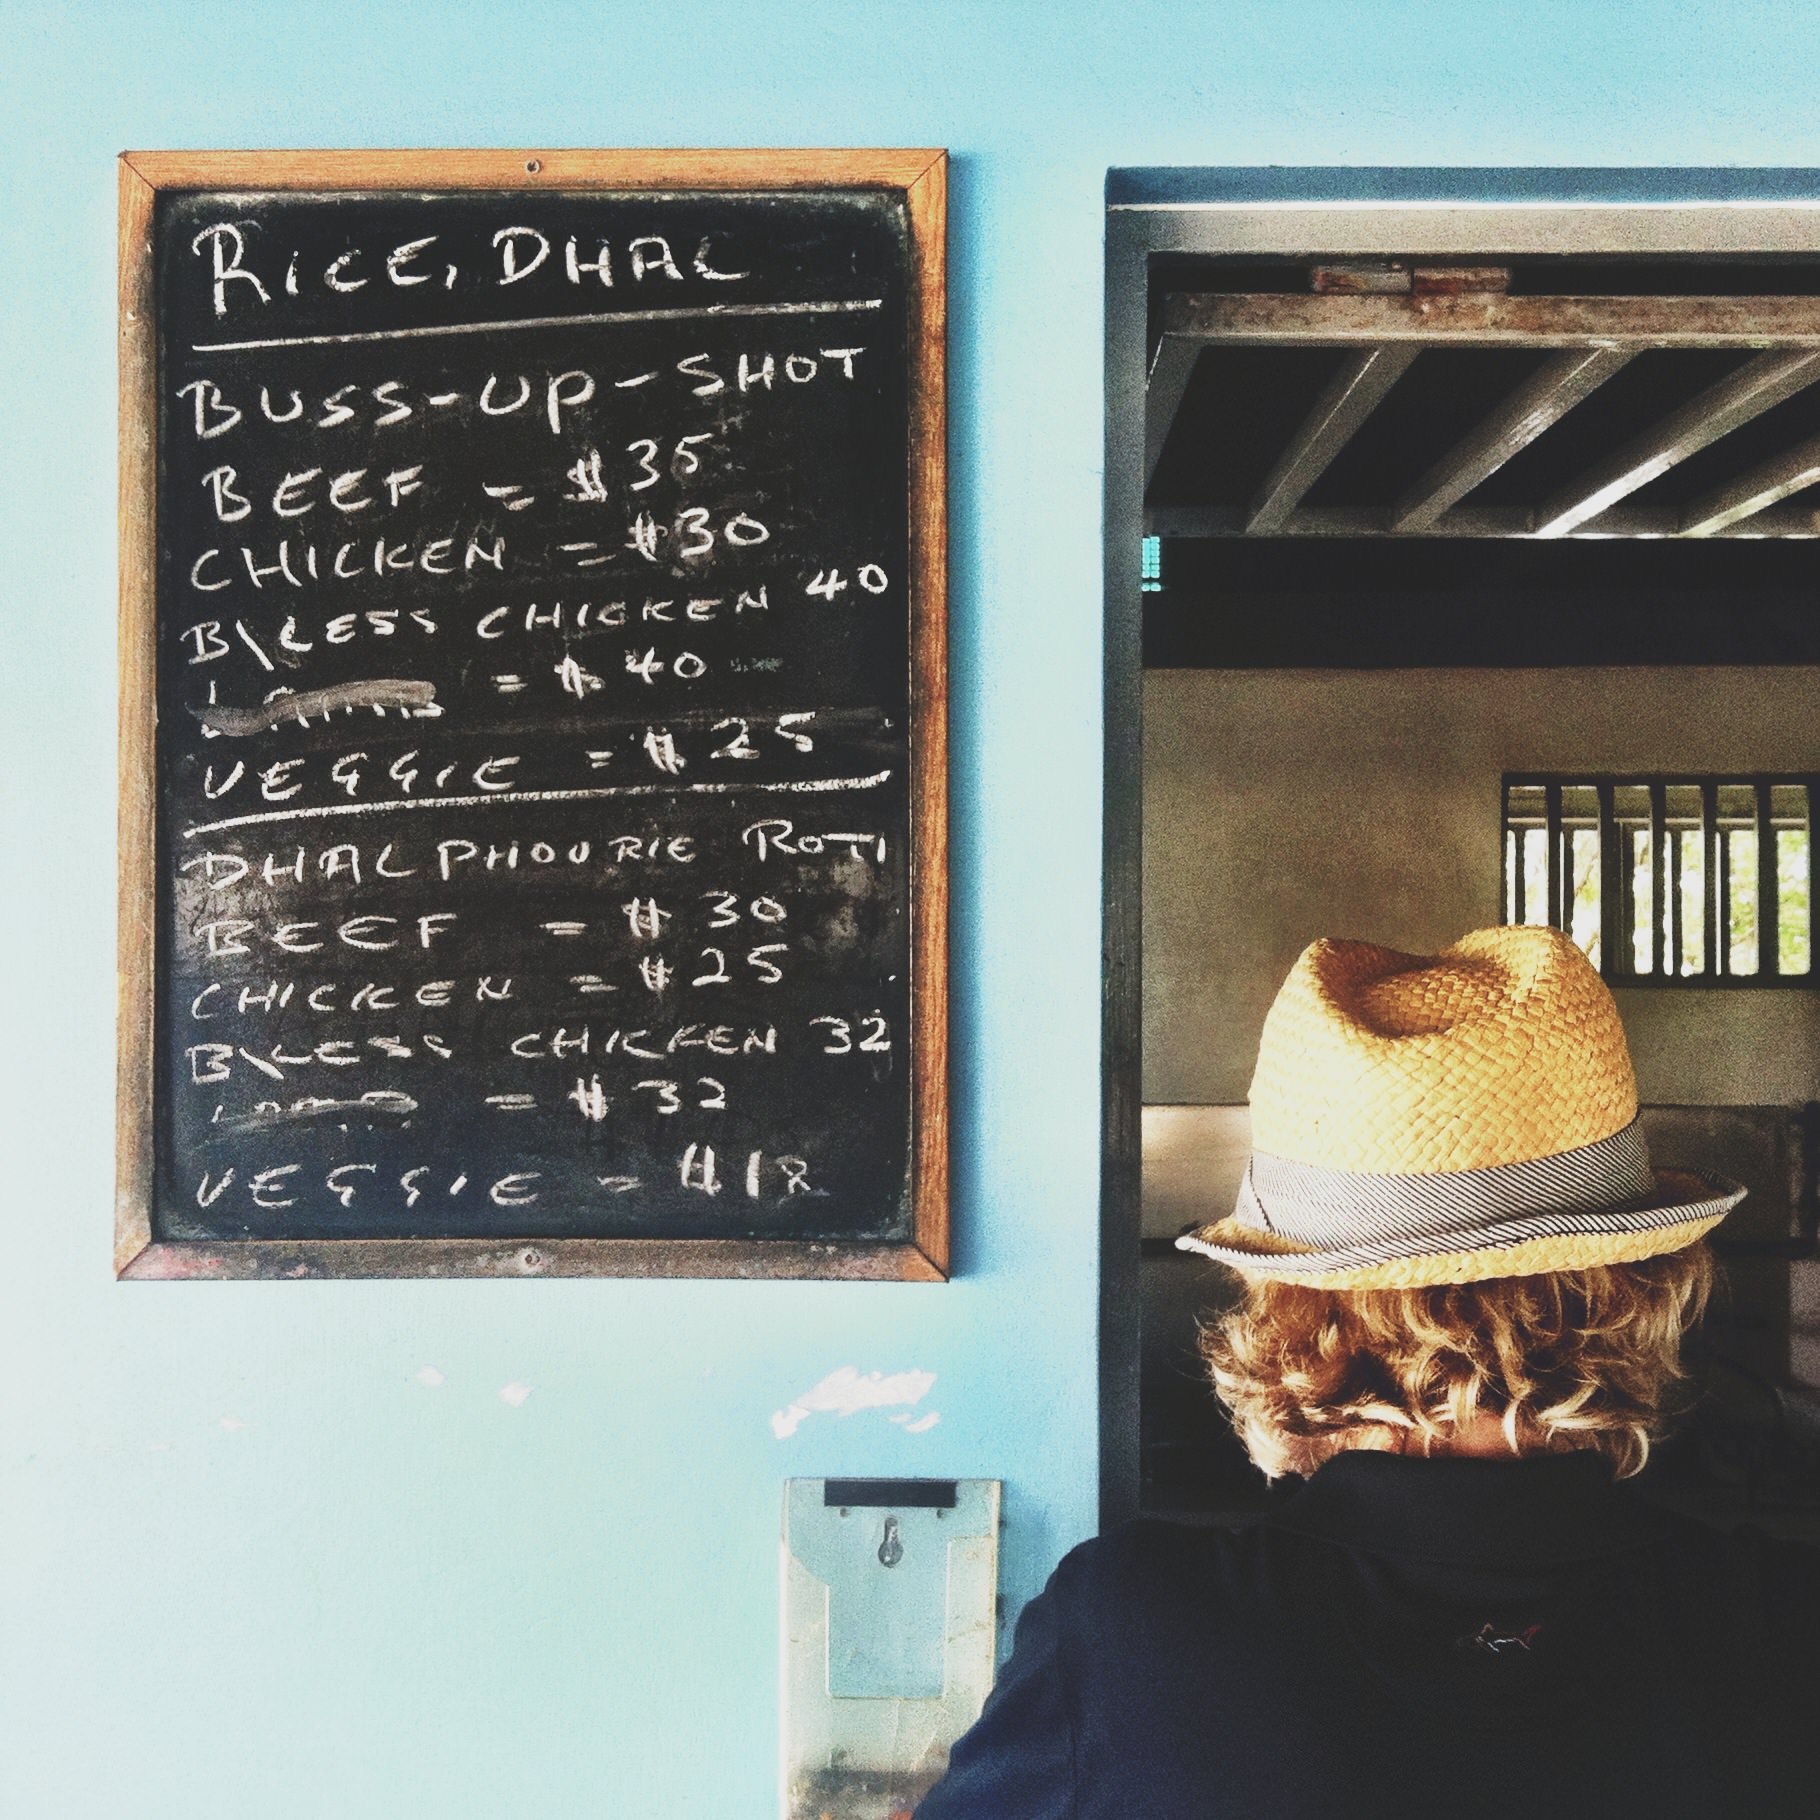 RICE, DHAL
BUSS-UP-SHOT
BEEF = $35
CHICKEN = $30
B\LESS CHICKEN 40
= $40
VEGGIE = $25
DHALPHOURIE ROTI
BEEF = $30
CHICKEN = $25
B\LESS CHICKEN 32
= $32
VEGGIE = $18